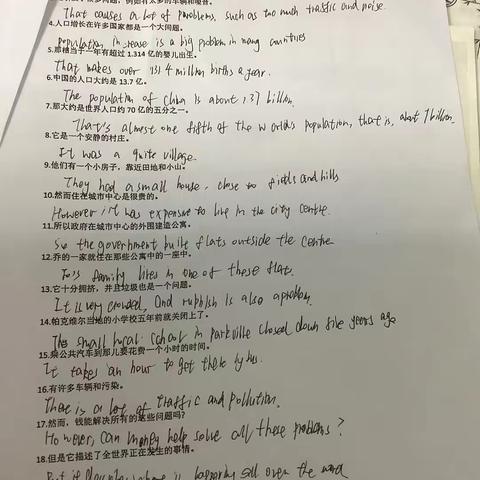 That causes a lot of problems, such as too much traffic and noise.
4.人口增长在许多国家都是一个大问题。
population increase is a big problem in many countries
5.那相当于一年有超过 1.314 亿的婴儿出生。
That makes over 131.4 million births a year.
6.中国的人口大约是 13.7 亿。
The population of China is about 1.37 billion.
7.那大约是世界人口约 70 亿的五分之一。
That's almost one fifth of the world's population, that is, about 7 billion.
8.它是一个安静的村庄。
It was a quite village.
9.他们有一个小房子，靠近田地和小山。
They had a small house, close to fields and hills
10.然而住在城市中心是很贵的。
However it was expensive to live in the city centre.
11.所以政府在城市中心的外围建造公寓。
So the government built flats outside the centre
12.乔的一家就住在那些公寓中的一座中。
Jo's family lives in one of those flat.
13.它十分拥挤，并且垃圾也是一个问题。
It is very crowded, and rubbish is also a problem.
14.帕克维尔当地的小学校五年前就关闭了。
The small local school in Parkville closed down five years ago
15.乘公共汽车到那儿要花费一个小时的时间。
It takes an hour to get there by bus.
16.有许多车辆和污染。
There is a lot of traffic and pollution.
17.然而，钱能解决所有的这些问题吗？
However, can money help solve all these problems?
18.但是它描述了全世界正在发生的事情。
all over the